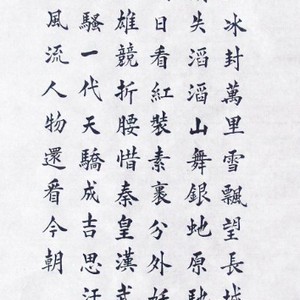 冰封萬里雪飄望長城
失滔滔山舞銀虵原馳
日看紅裝素裹分外妖
雄競折腰惜秦皇漢武
騷一代天驕成吉思汗
風流人物還看今朝